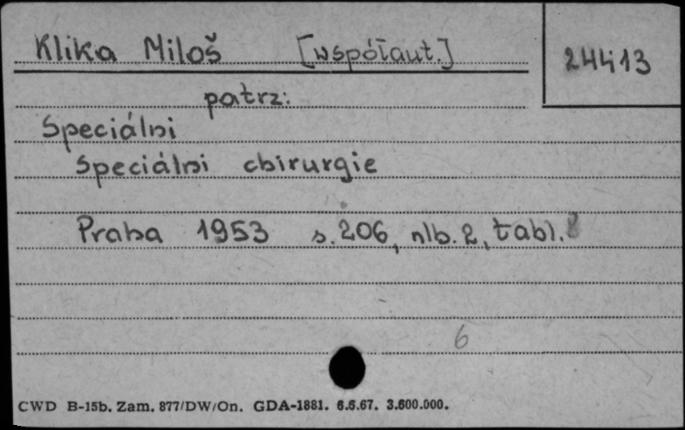 Klika Miloš [współaut.]
24413
patrz:
Speciálni
Speciálni chirurgie
Praha 1953 s. 206, nlb. 2, tabl. 8
6
CWD B-15b. Zam. 877/DW/On. GDA-1881. 6.6.67. 3.600.000.